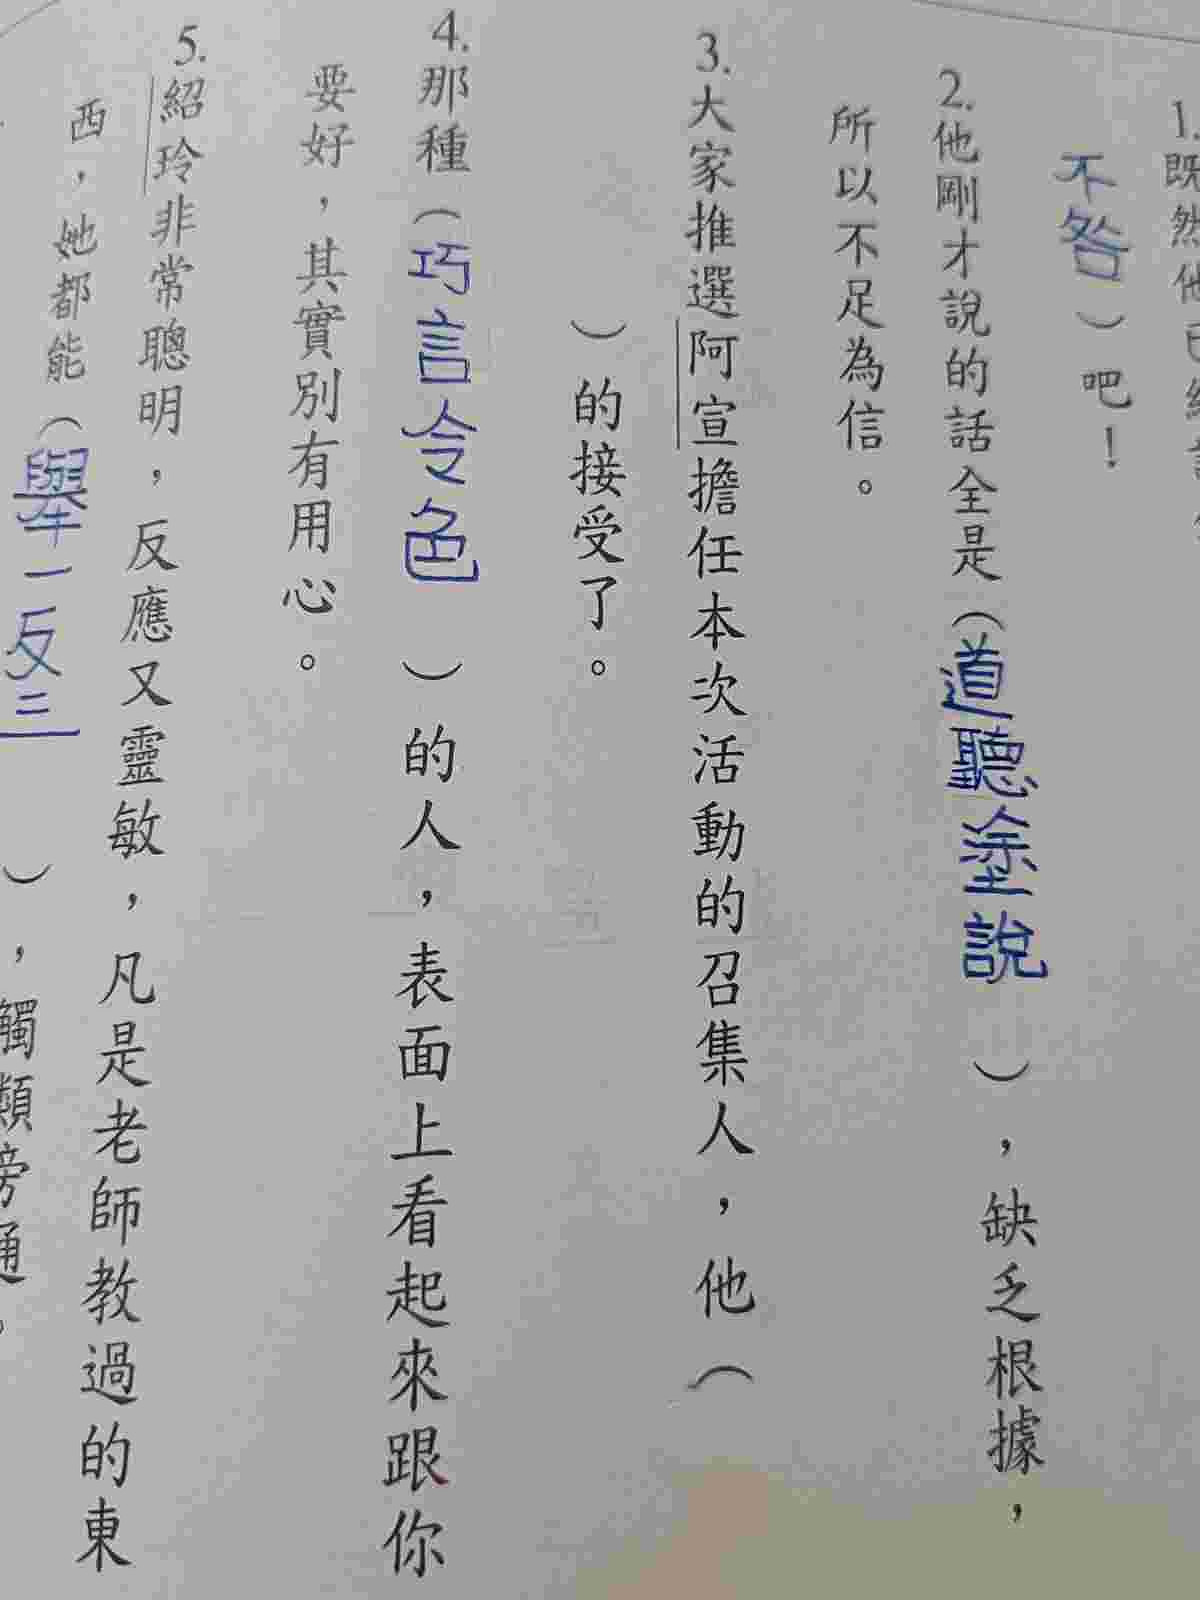 1.既然他已經
不咎）吧！
2.他剛才說的話全是（道聽塗說），缺乏根據，
所以不足為信。
3.大家推選阿宣擔任本次活動的召集人，他（
）的接受了。
4.那種（巧言令色）的人，表面上看起來跟你
要好，其實別有用心。
5.紹玲非常聰明，反應又靈敏，凡是老師教過的東
西，她都能（舉一反三），觸類旁通。